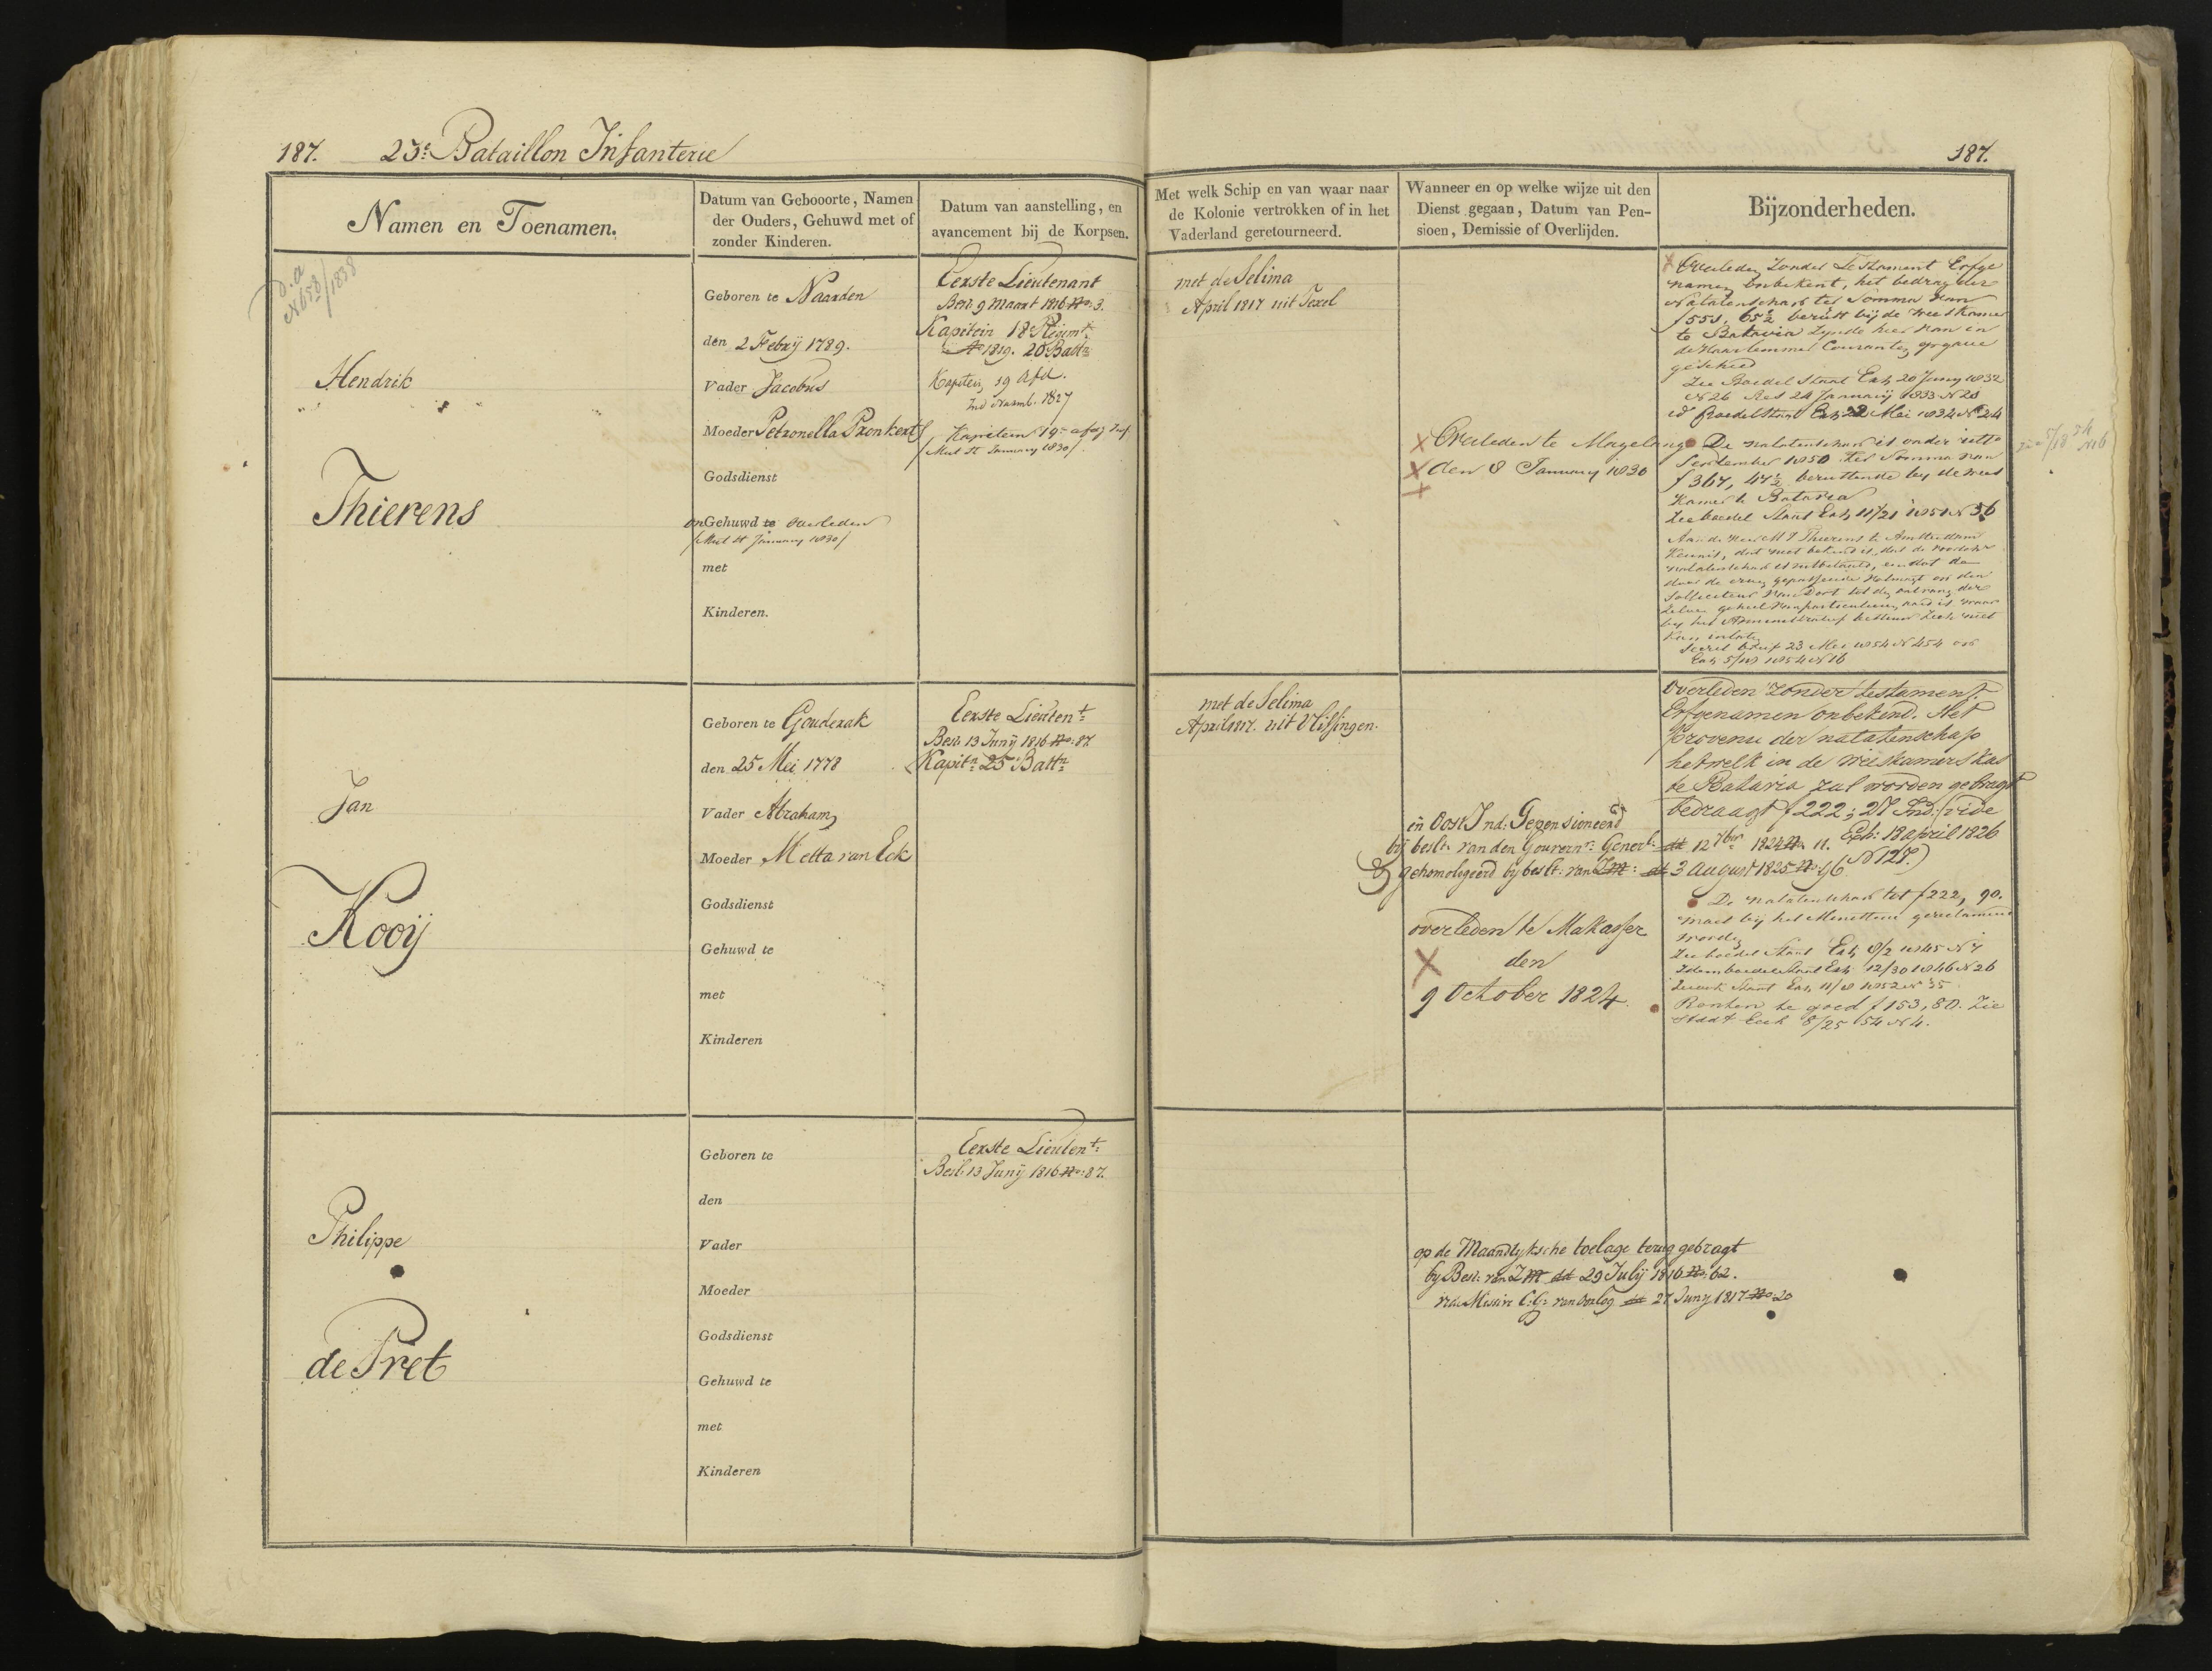 187. 23e Bataillon Infanterie
187.
Namen en Toenamen.
Datum van Gebooorte, Namen
der Ouders, Gehuwd met of
zonder Kinderen.
Datum van aanstelling, en
avancement bij de Korpsen.
Met welk Schip en van waar naar
de Kolonie vertrokken of in het
Vaderland geretourneerd.
Wanneer en op welke wijze uit den
Dienst gegaan, Datum van Pen-
sioen, Demissie of Overlijden.
Bijzonderheden.
N 658/1838
Hendrik
Thierens
Geboren te Naarden
den 2 Febrij 1789.
Vader Jacobus
Moeder Petronella Pronkert
Godsdienst
onGehuwd te overleden
/Mul St January 1830/
met
Kinderen.
Eerste Lieutenant
Besl. 9 Maart 1816 No. 3.
Kapitein 18e Regimt.
Ao 1819. 20 Battn
Kapitein 19 Afd.
Ind Naaml. 1827
Kapitein 19e afd Inf
/Mul St January 1830/
met de Selima
April 1817 uit Texel
Overleden te Magelang
den 8 January 1830
Overleden zonder Testament Erfge
namen onbekent, het bedrag der
Nalatenschap ter Somma van
f 551, 65½ berust bij de Weeskamer
te Batavia zynde hier van in
de Haarlemmer Couranten opgave
geschied
Zie Boedel Staat Exh 20 Juny 1832
N 26 Res 24 January 1833 N 20
id Boedelstaat Exh 22 Mei 1834 N 24
De nalatenschap is onder ulto
September 1850 ter Somma van
f 367, 47½ berustende by de Wees
Kamer te Batavia
Zie boedel Staat Exh 11/21 1851 N 36
Aan de Heer M J Thierens te Amsterdam
Kennis, dat niet bekend is, dat de
nalatenschap is uitbetaald, en dat de
door de erven gepasseerde Volmagt op den
Solliciteur van Dort tot den ontvang der
zelve geheel van particulieren aard is waar
by het Administratief bestuur zich niet
kan inlaten
brief 23 Mei 1854 N 454
Exh 5/18 1854 N 16
5/18 54 N 16
Jan
Kooij
Geboren te Gouderak
den 25 Mei 1778
Vader Abraham
Moeder Metta van Eck
Godsdienst
Gehuwd te
met
Kinderen
Eerste Lieutent.
Besl. 13 Junij 1816 No. 87.
Kapitn. 25 Battn.
met de Selima
April 1817. uit Vlissingen.
in Oost Ind: Gepensioneerd
bij beslt. van den Gouvernr. Generl. dd 12 7ber 1824 No. 11.
gehomologeerd by beslt: van ZM: dd 3 August 1825 No. 96
overleden te Makasser
den
9 October 1824.
Overleden zonder testament.
Erfgenamen onbekend. Het
Provenu der nalatenschap
hetwelk in de weeskamers Kas
te Batavia zal worden gebragt
bedraagt f 222; 27 Ind: (vide
Exh: 18 april 1826
N 127.)
De nalatenschap tot f 222, 90.
moet bij het Ministerie gereclameerd
worden
Zie boedel Staat Exh 8/2 1845 N 7
Idem boedel Staat Exh 12/30 1846 N 26
Staat Exh 11/8 1852 N 35
Renten te goed f 153, 80. Zie
Staat Exh 8/25 54 N 4.
Philippe
de Pret
Geboren te
den
Vader
Moeder
Godsdienst
Gehuwd te
met
Kinderen
Eerste Lieutent.
Besl. 13 Junij 1816 No. 87.
op de Maandlyksche toelage terug gebragt
by Besl. van ZM dd 29 Julij 1816 No. 62.
vide Missive C:G: van Oorlog dd 27 Juny 1817 No 20